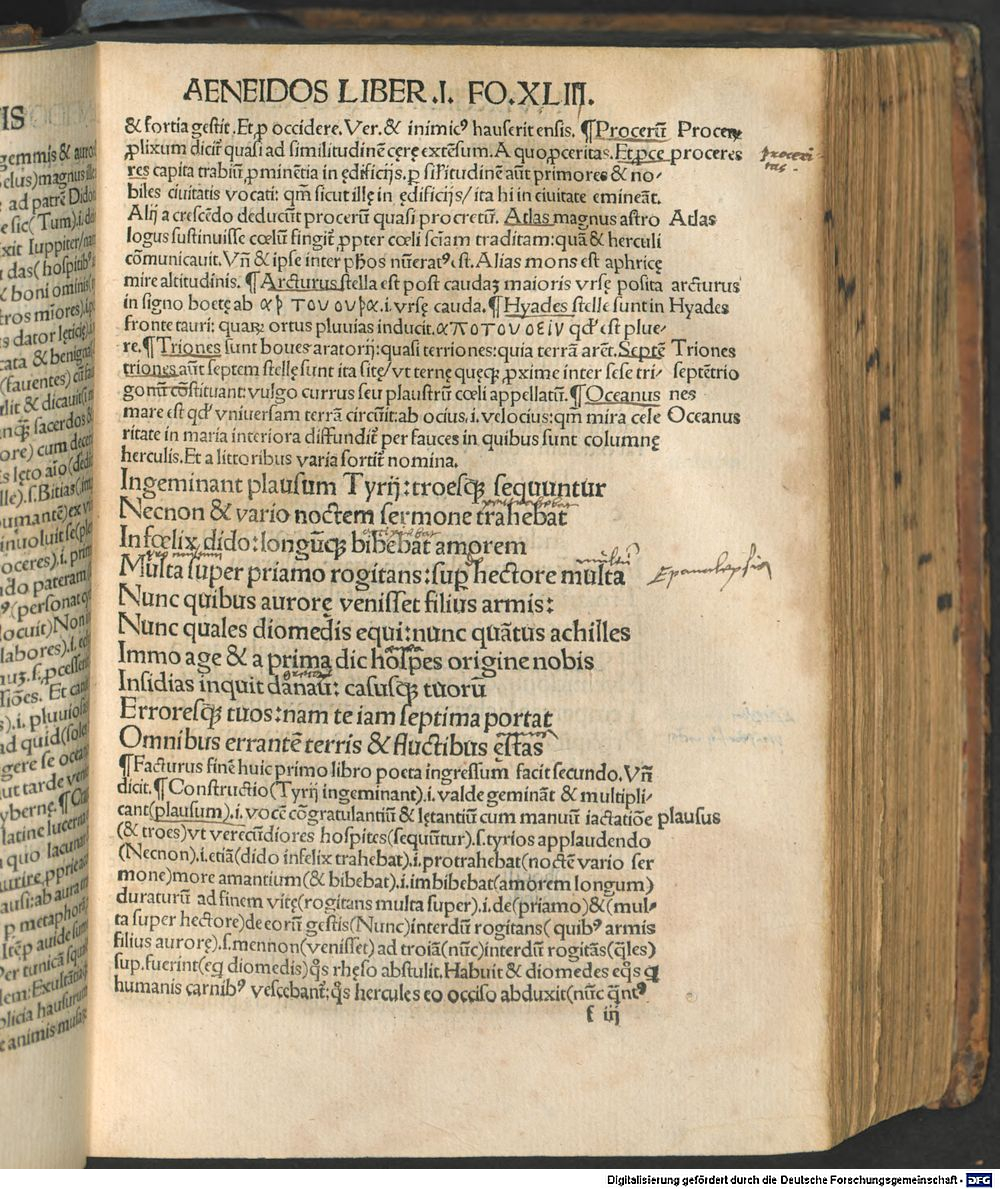 AENEIDOS LIBER .I. FO. XLIII.
& fortia gestit. Et ꝓ occidere. Ver. & inimicꝰ hauserit ensis. ¶Procerū Procer
ꝓlixum dicit̃ quasi ad similitudinē cęrę extēsum. A quo ꝓceritas. Et ꝓce proceres
res capita trabiū, ꝓminētia in ędificijs. ꝑ sił'itudinē aūt primores & no/
biles ciuitatis vocati: qm̄ sicut illę in ędificijs/ ita hi in ciuitate emineāt.
Alij a crescēdo deducūt procerū quasi procretū. Atlas magnus astro Atlas
logus sustinuisse cœlū fingit̃ ꝓpter cœli sciam traditam: quā & herculi
cōmunicauit. Vn̄ & ipse inter pħos nūerat᷒ est. Alias mons est aphricę
mire altitudinis. ¶ Arcturus stella est post caudaꝫ maioris vrsę posita arcturus
in signo boetę ab αρ του ουρα .i. vrsę cauda. ¶Hyades stelle sunt in Hyades
fronte tauri: quaꝝ ortus pluuias inducit. απο του οειν qd' est plue/
re. ¶Triones sunt boues aratorij: quasi terriones: quia terrā arēt. Septē Triones
triones aūt septem stellę sunt ita sitę/ vt ternę quęqꝫ ꝓxime inter sese tri/ septētrio
gonū cōstituant: vulgo currus seu plaustrū cœli appellatū. ¶Oceanus nes
mare est qd' vniuersam terrā circūit: ab ocius .i. velocius: qm̄ mira cele Oceanus
ritate in maria interiora diffundit̃ per fauces in quibus sunt columnę
herculis. Et a littoribus varia sortit̃ nomina.
Ingeminant plausum Tyrij: troesqꝫ sequuntur
Necnon & vario noctem sermone trahebat
Infœlix dido: longūqꝫ bibebat amorem
Multa super priamo rogitans: suꝑ hectore multa
Nunc quibus aurorę venisset filius armis:
Nunc quales diomedis equi: nunc quātus achilles
Immo age & a prima dic hospes origine nobis
Insidias inquit danaū: casusqꝫ tuorū
Erroresqꝫ tuos: nam te iam septima portat
Omnibus errantē terris & fluctibus ęstas
¶Facturus finē huic primo libro poeta ingressum facit secundo. Vn̄
dicit. ¶ Constructio (Tyrij ingeminant) .i. valde gemināt & multipli/
cant (plausum) .i. vocē cōgratulantiū & lętantiū cum manuū iactatiōe plausus
(& troes) vt verecūdiores hospites (sequūtur) .s. tyrios applaudendo
(Necnon) .i. etiā (dido infelix trahebat) .i. protrahebat (noctē vario ser
mone) more amantium (& bibebat) .i. imbibebat (amorem longum)
duraturū ad finem vitę (rogitans multa super) .i. de (priamo) & (mul/
ta super hectore) de eorū gestis (Nunc) interdū rogitans ( quibꝰ armis
filius aurorę) .s. mennon (venisset) ad troiā (nūc) interdū rogitās (q̄les)
sup. fuerint (eq diomedis) q̄s rhęso abstulit. Habuit & diomedes eq̄s q
humanis carnibꝰ vescebant̃: q̄s hercules eo occiso abduxit (nūc q̄ntꝰ
f iij
proceri-
tas.
Epanalepsis
multū
Digitalisierung gefördert durch die Deutsche Forschungsgemeinschaft - DFG